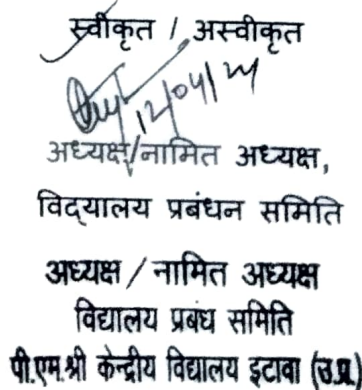 स्वीकृत / अस्वीकृत
12/04/24
अध्यक्ष/नामित अध्यक्ष,
विद्यालय प्रबंधन समिति
अध्यक्ष / नामित अध्यक्ष
विद्यालय प्रबंध समिति
पी.एम.श्री केन्द्रीय विद्यालय इटावा (उ.प्र.)